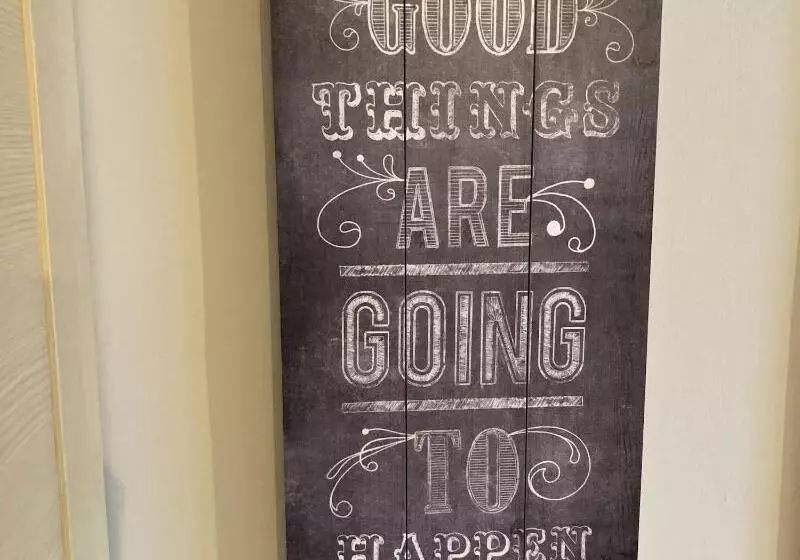 GOOD
THINGS
ARE
GOING
TO
HAPPEN